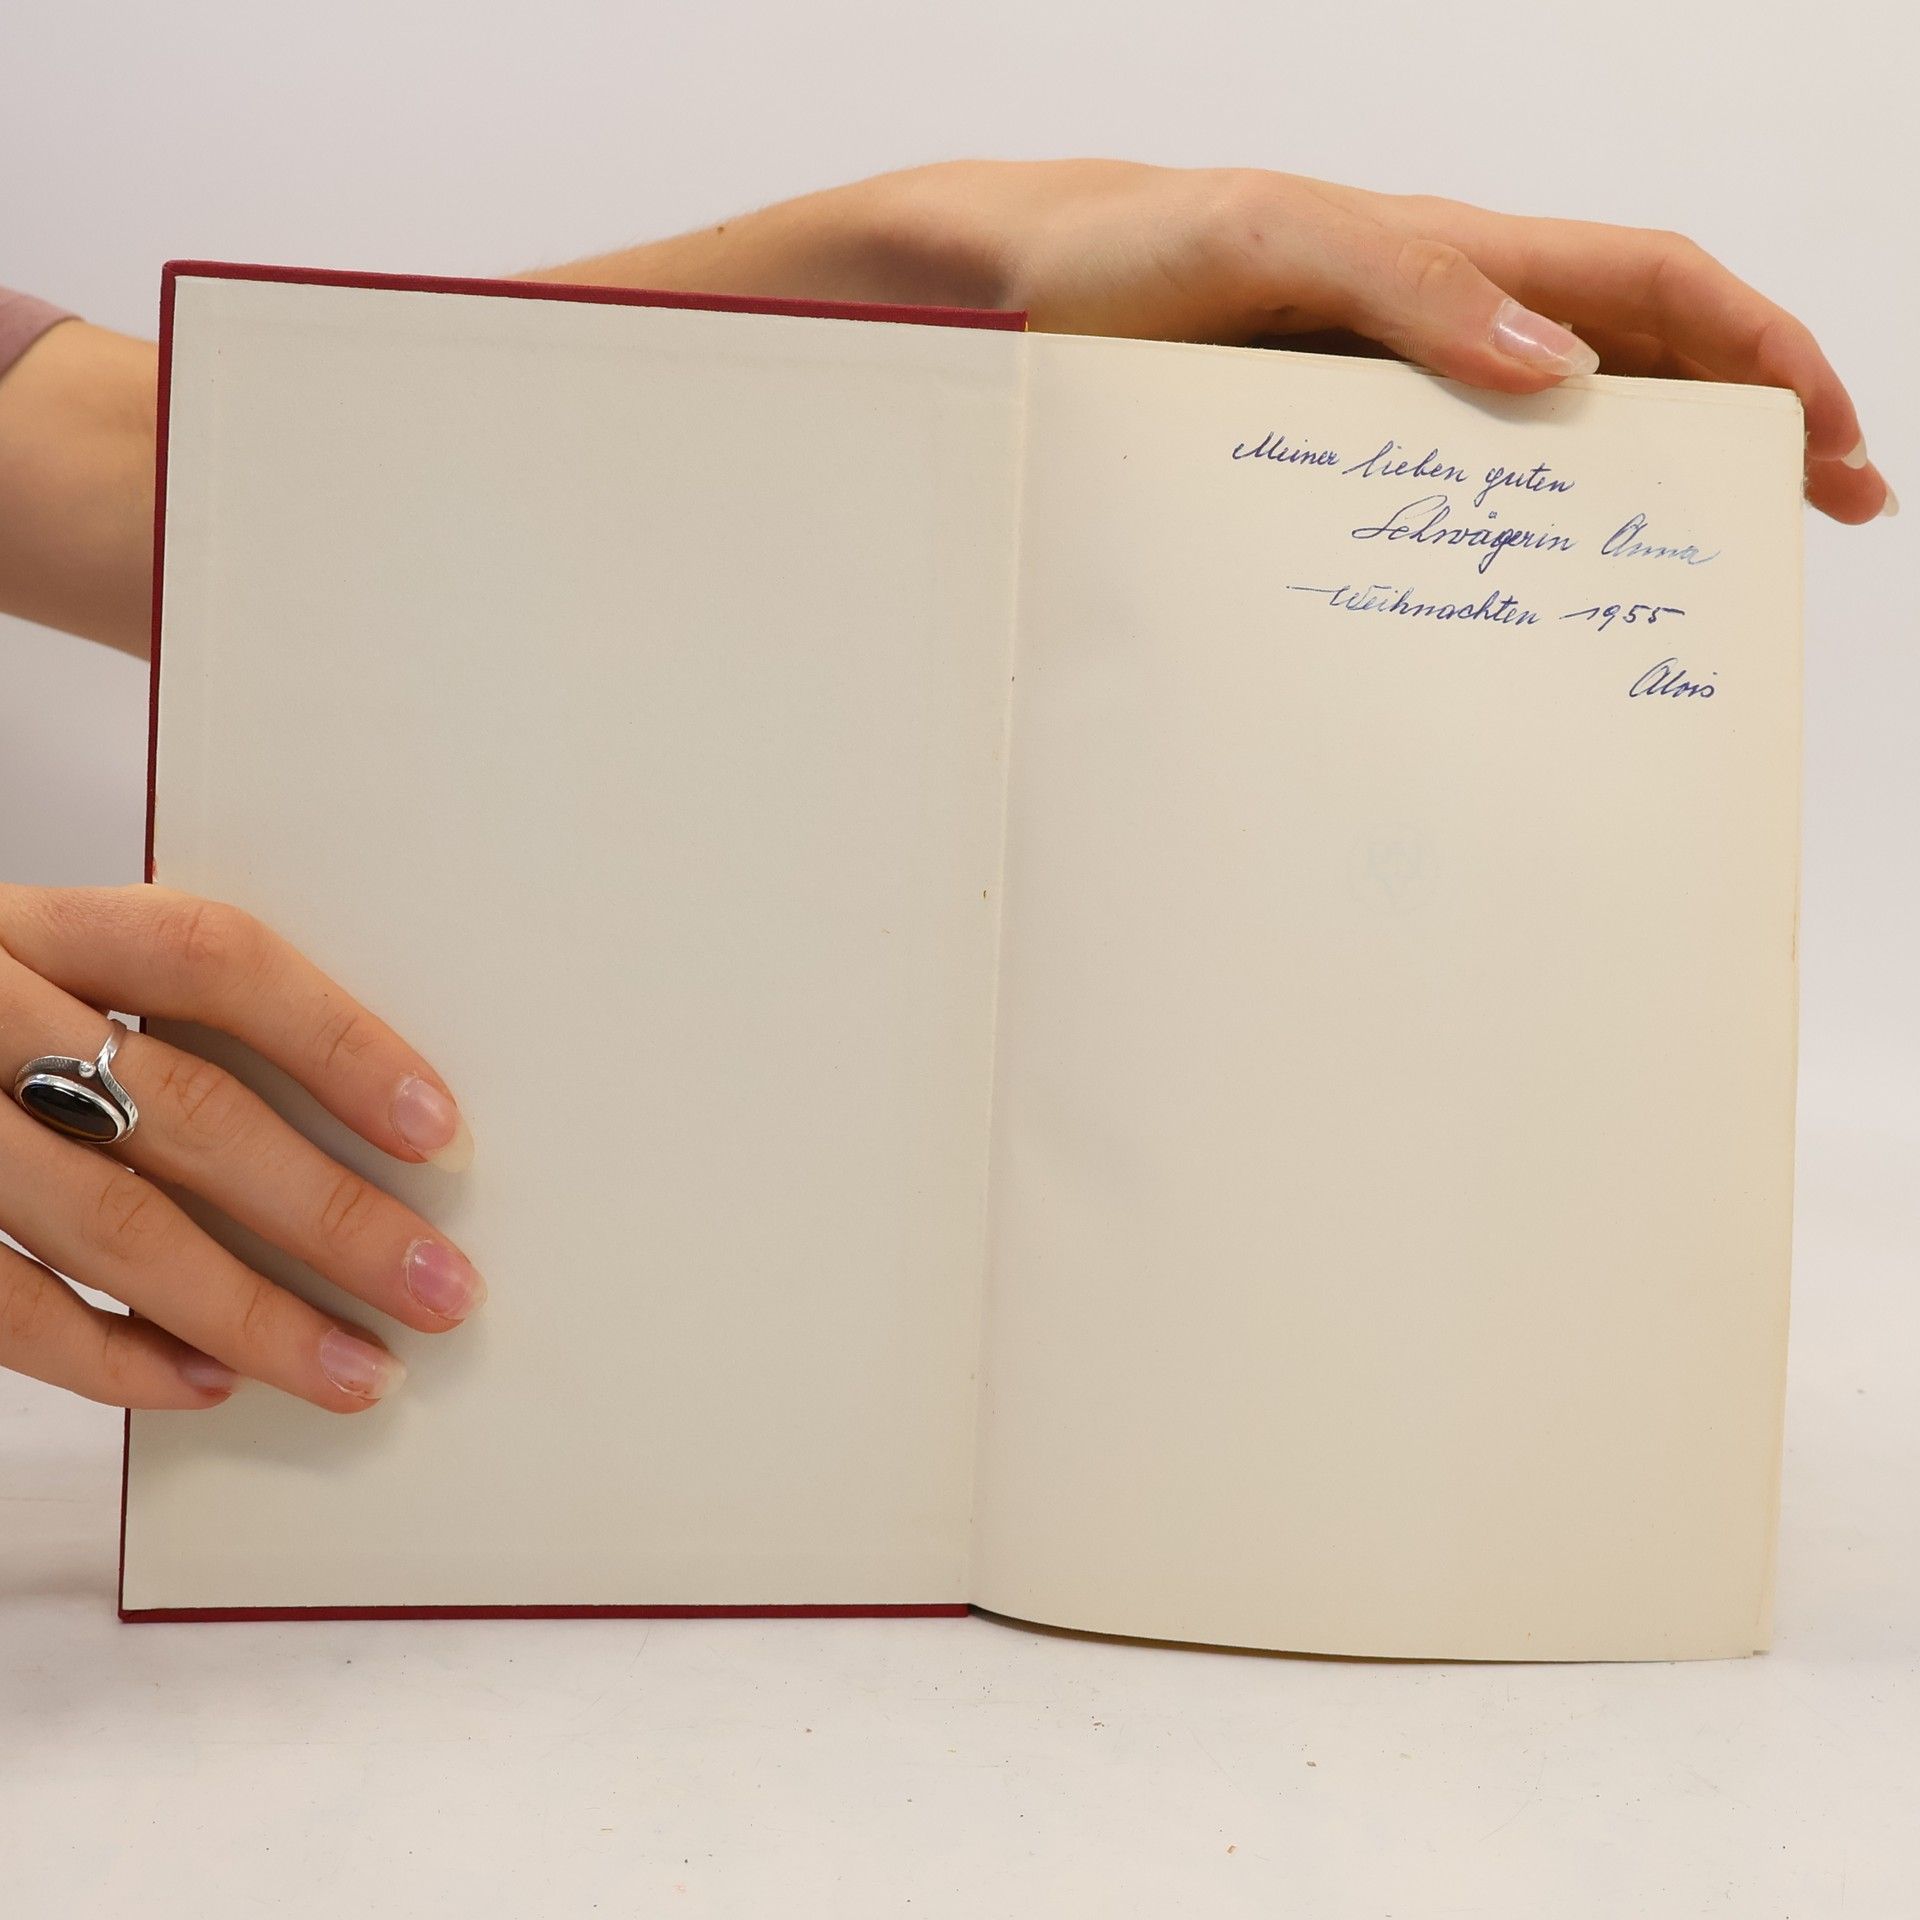 Meiner lieben guten
Schwägerin Anna
Weihnachten 1955
Alois